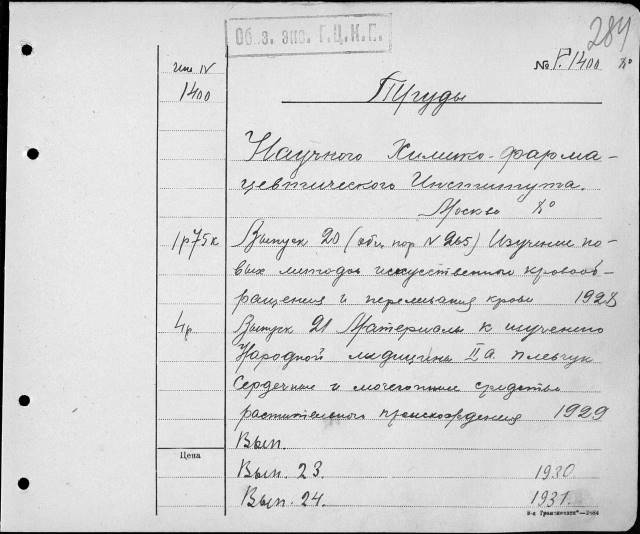 284
Об.з. экз. Г.Ц.К.Г.
№ Р.1400 8°
1400
Труды
Научного Химико-фарма-
цевтического Института.
Москва 8°
1р75к Выпуск 20 (общ. пор № 265) Изучение но-
вых методов искусственного кровооб-
ращения и переливания крови 1928
4р Выпуск 21 Материалы к изучению
Народной медицины II а.
Сердечные и мочегонные средства
растительного происхождения 1929
Вып.
Цена
Вып. 23. 1930.
Вып. 24. 1931.